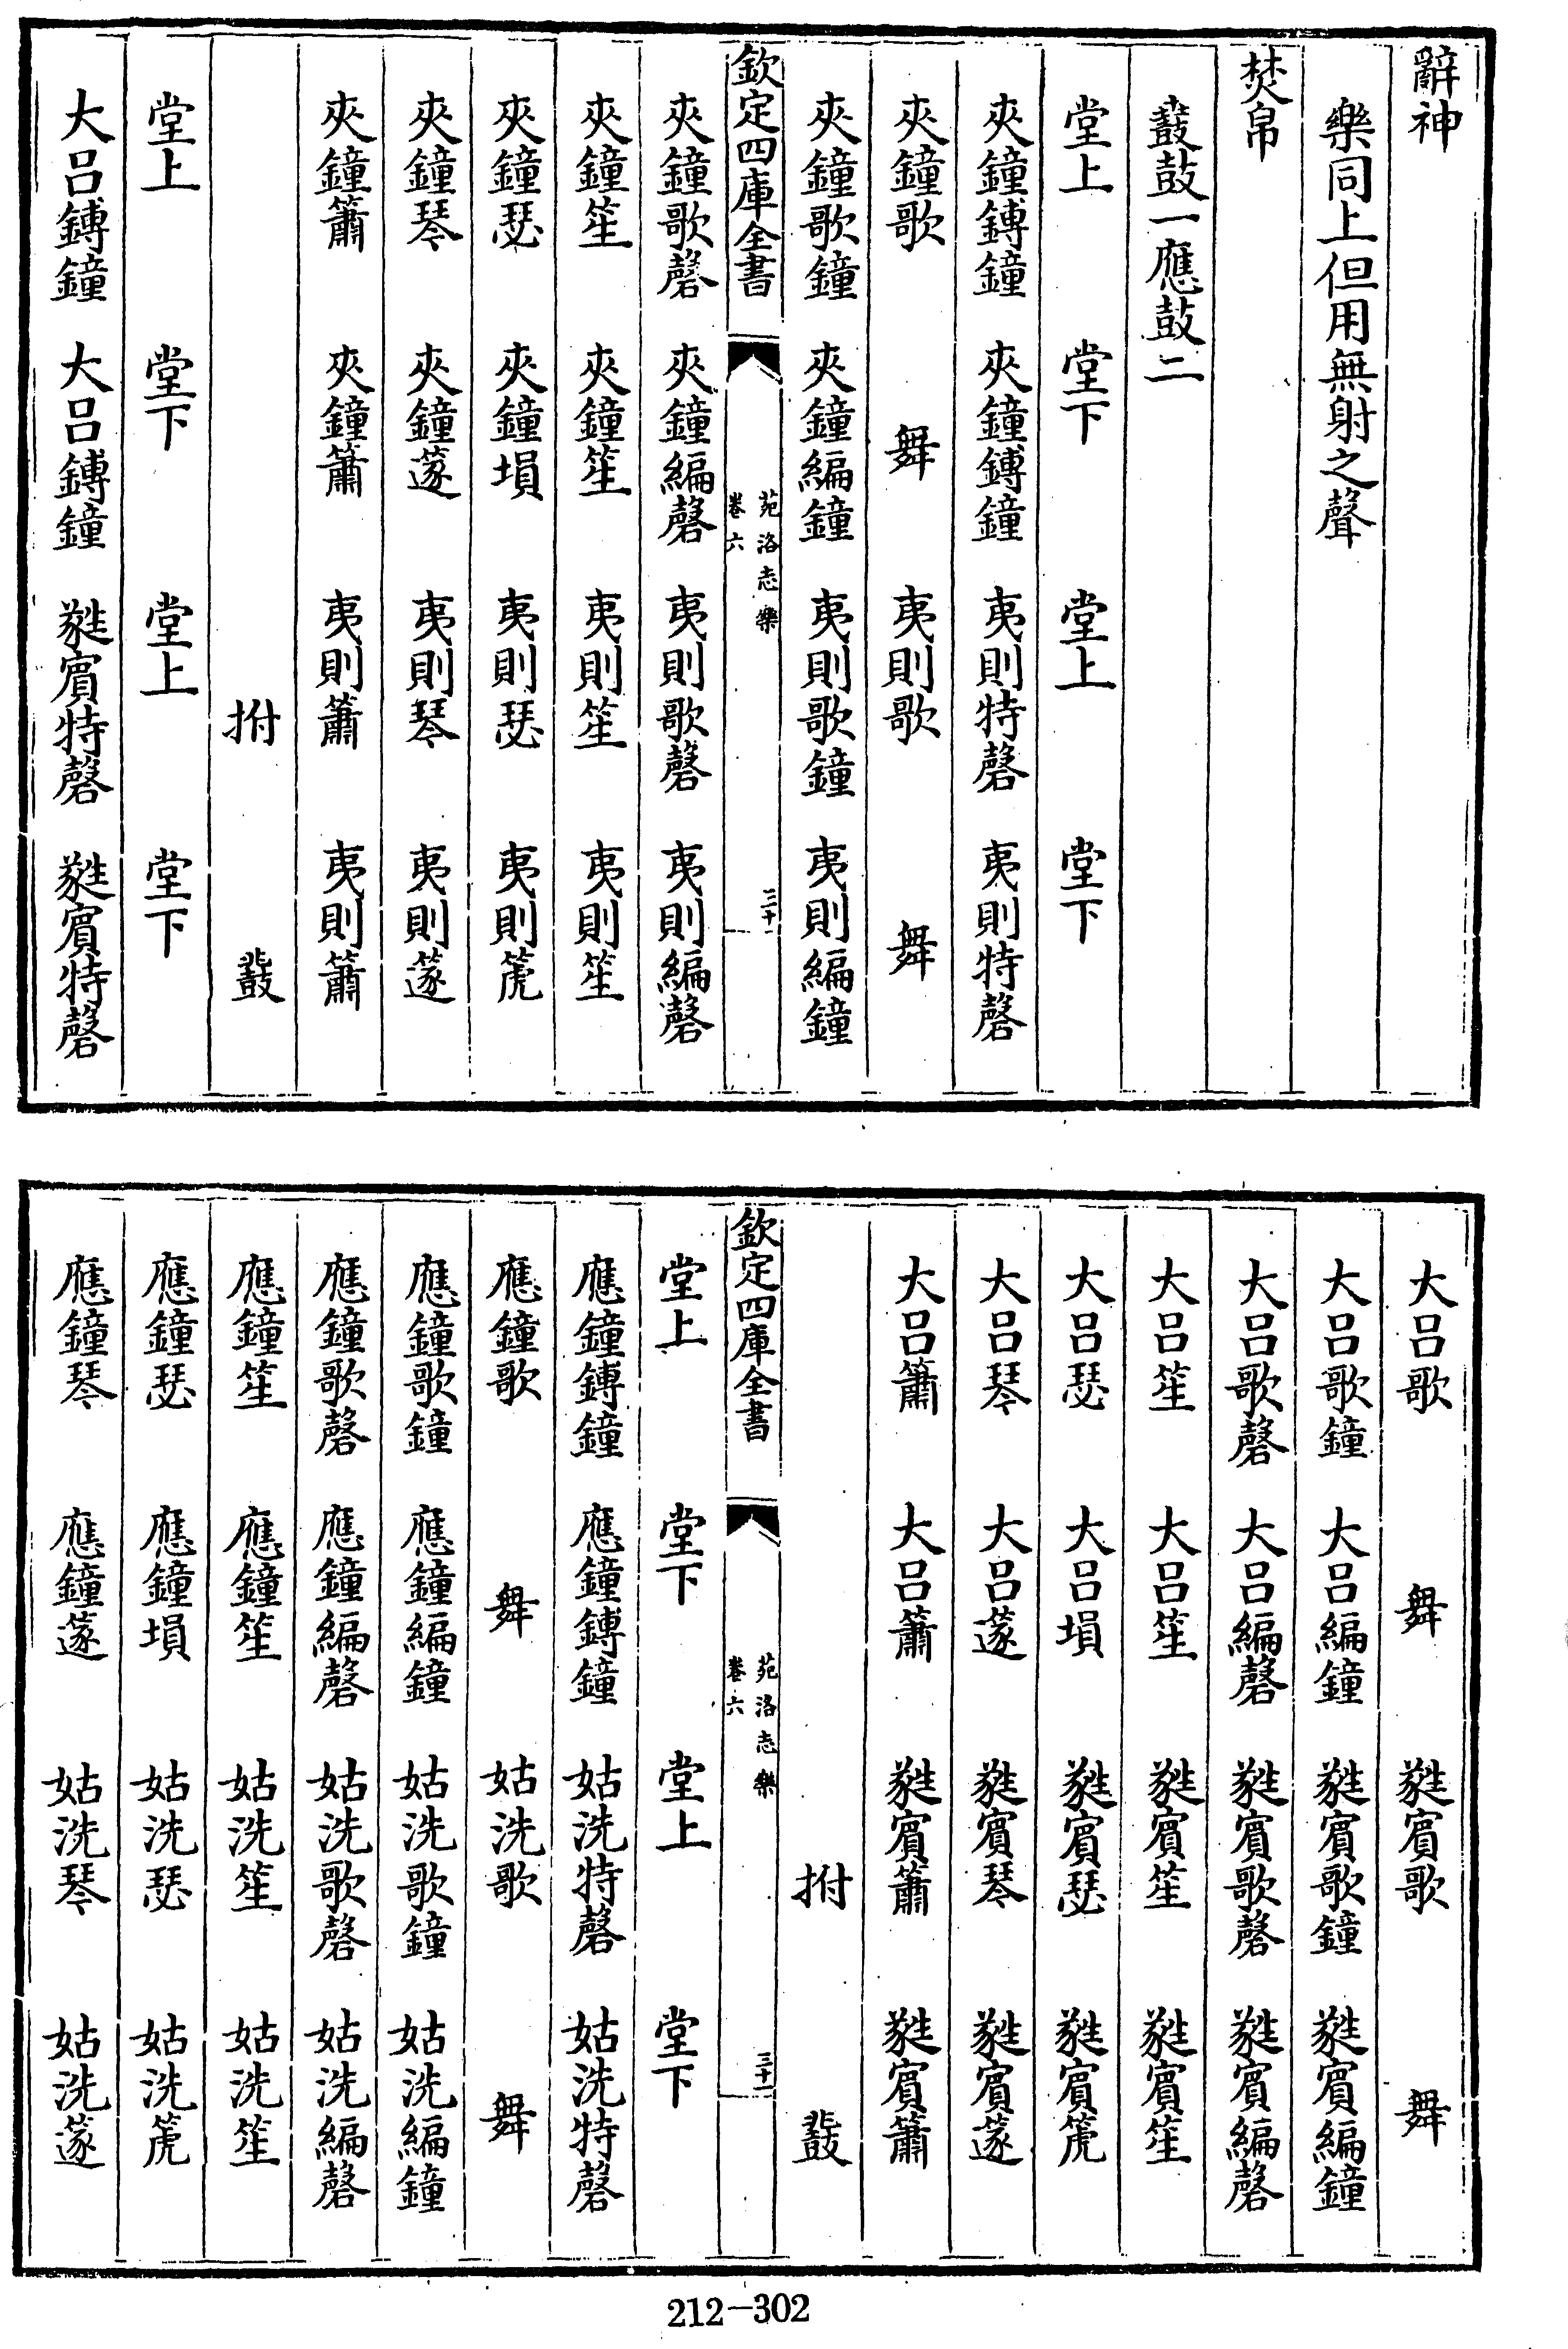 辭神
樂同上但用無射之聲
焚帛
鼖鼓一應鼓二
堂上 堂下 堂上 堂下
夾鐘鎛鐘 夾鐘鎛鐘 夷則特磬 夷則特磬
夾鐘歌 舞 夷則歌 舞
夾鐘歌鐘 夾鐘編鐘 夷則歌鐘 夷則編鐘
欽定四庫全書 苑洛志樂 卷六 三十
夾鐘歌磬 夾鐘編磬 夷則歌磬 夷則編磬
夾鐘笙 夾鐘笙 夷則笙 夷則笙
夾鐘瑟 夾鐘塤 夷則瑟 夷則箎
夾鐘琴 夾鐘篴 夷則琴 夷則篴
夾鐘簫 夾鐘簫 夷則簫 夷則簫
拊 鼗
堂上 堂下 堂上 堂下
大呂鎛鐘 大呂鎛鐘 蕤賓特磬 蕤賓特磬
大呂歌 舞 蕤賓歌 舞
大呂歌鐘 大呂編鐘 蕤賓歌鐘 蕤賓編鐘
大呂歌磬 大呂編磬 蕤賓歌磬 蕤賓編磬
大呂笙 大呂笙 蕤賓笙 蕤賓笙
大呂瑟 大呂塤 蕤賓瑟 蕤賓箎
大呂琴 大呂篴 蕤賓琴 蕤賓篴
大呂簫 大呂簫 蕤賓簫 蕤賓簫
拊 鼗
欽定四庫全書 苑洛志樂 卷六 三十一
堂上 堂下 堂上 堂下
應鐘鎛鐘 應鐘鎛鐘 姑洗特磬 姑洗特磬
應鐘歌 舞 姑洗歌 舞
應鐘歌鐘 應鐘編鐘 姑洗歌鐘 姑洗編鐘
應鐘歌磬 應鐘編磬 姑洗歌磬 姑洗編磬
應鐘笙 應鐘笙 姑洗笙 姑洗笙
應鐘瑟 應鐘塤 姑洗瑟 姑洗箎
應鐘琴 應鐘篴 姑洗琴 姑洗篴
212-302